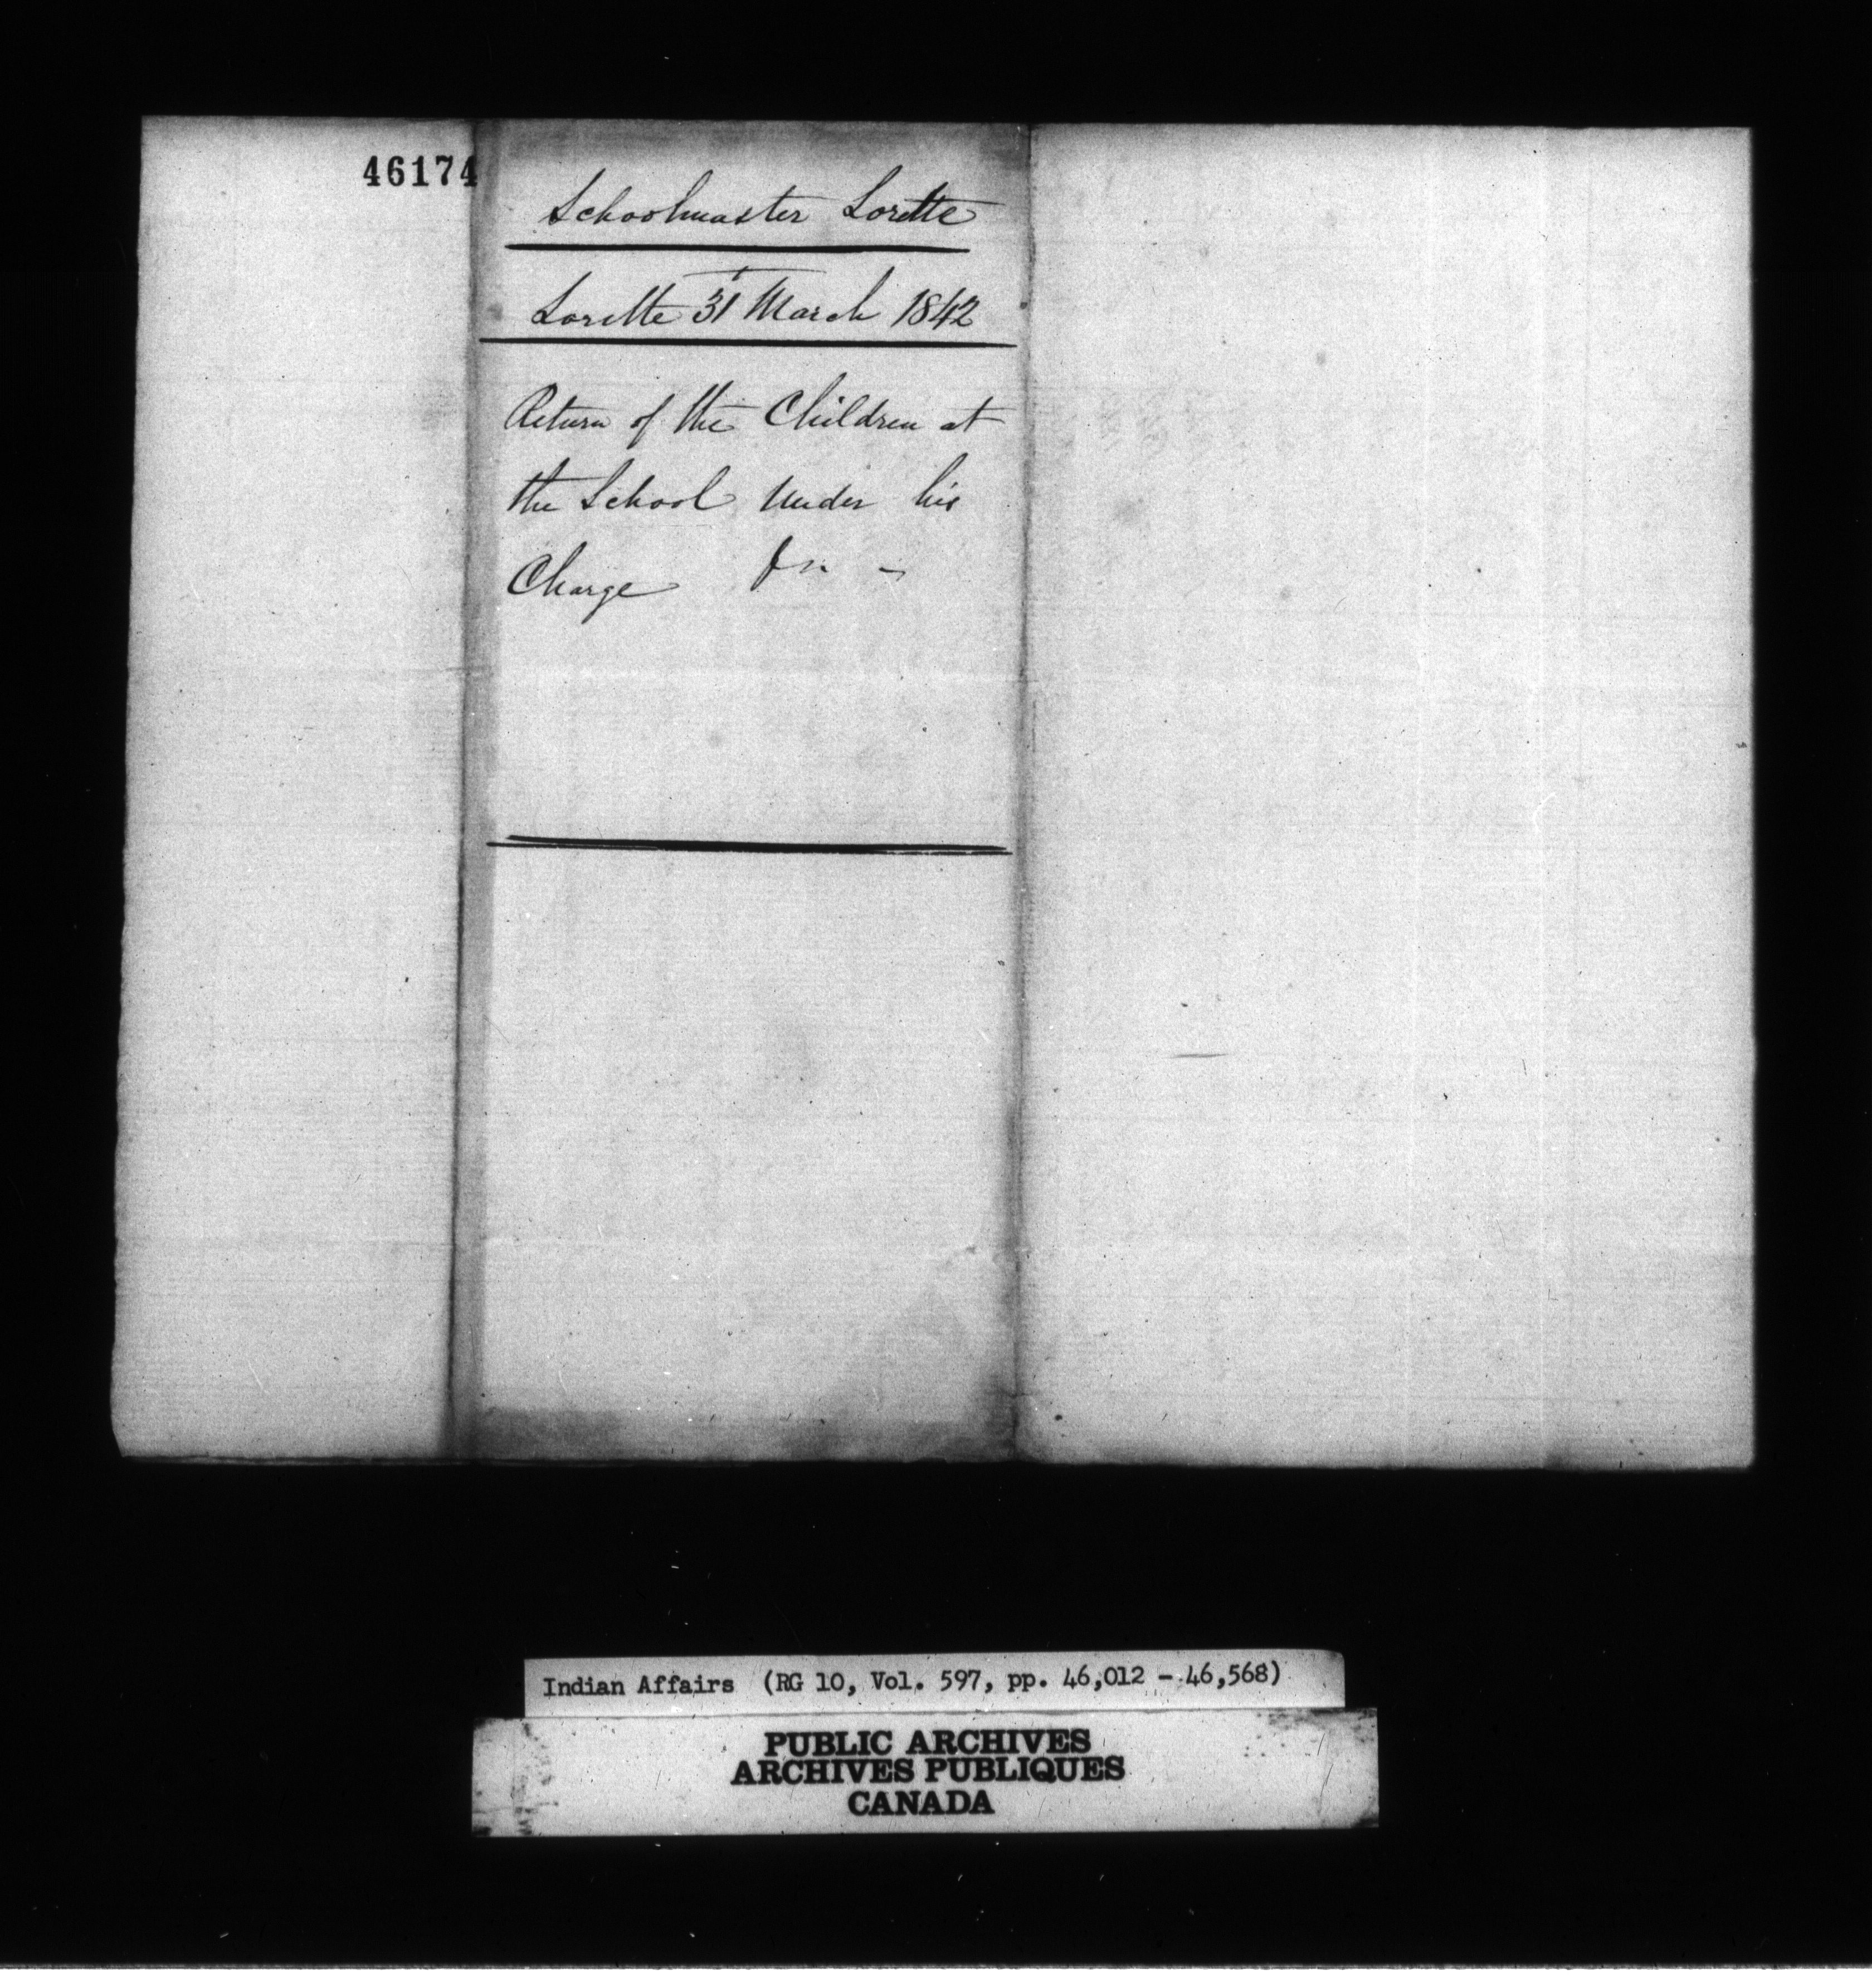 46174
Schoolmaster Lorette
Lorette 31 March 1842
Return of the Children at
the School under his
Charge
Indian Affairs (RG 10, Vol. 597, pp. 46,012 - 46,568)
PUBLIC ARCHIVES
ARCHIVES PUBLIQUES
CANADA